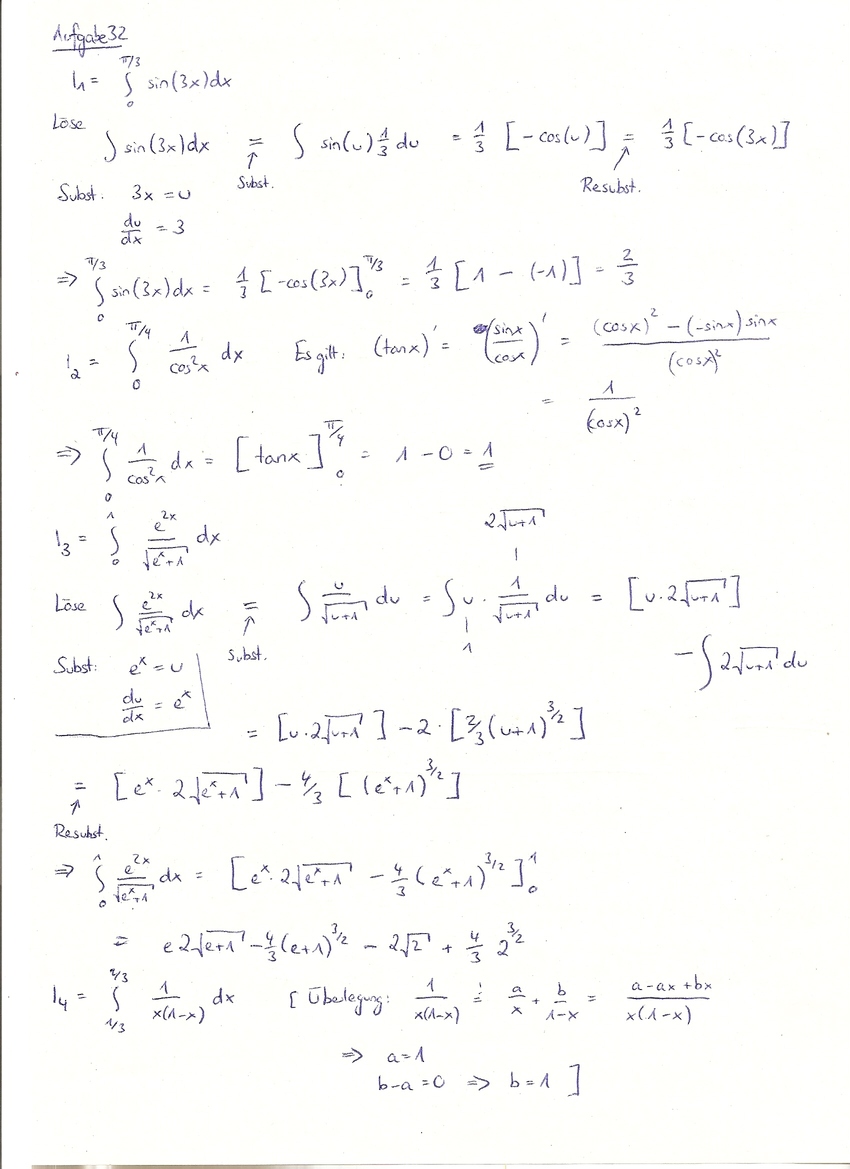 Aufgabe 32
I₁ = ∫₀^{π/3} sin(3x)dx
Löse
∫ sin(3x)dx = ∫ sin(u) 1/3 du = 1/3 [-cos(u)] = 1/3 [-cos(3x)]
↑ Subst. ↑ Resubst.
Subst. 3x = u
du/dx = 3
⇒ ∫₀^{π/3} sin(3x)dx = 1/3 [-cos(3x)]₀^{π/3} = 1/3 [1 - (-1)] = 2/3
I₂ = ∫₀^{π/4} 1/cos²x dx Es gilt: (tanx)' = (sinx/cosx)' = ((cosx)² - (-sinx) sinx)/(cosx)²
= 1/(cosx)²
⇒ ∫₀^{π/4} 1/cos²x dx = [tanx]₀^{π/4} = 1 - 0 = 1
I₃ = ∫₀¹ e^{2x}/√(e^x+1) dx
2√(u+1)
Löse ∫ e^{2x}/√(e^x+1) dx = ∫ u/√(u+1) du = ∫ u · 1/√(u+1) du = [u·2√(u+1)]
↑ Subst. 1
- ∫ 2√(u+1) du
Subst: e^x = u
du/dx = e^x
= [u·2√(u+1)] - 2·[2/3 (u+1)^{3/2}]
= [e^x · 2√(e^x+1)] - 4/3 [(e^x+1)^{3/2}]
↑
Resubst.
⇒ ∫₀¹ e^{2x}/√(e^x+1) dx = [e^x · 2√(e^x+1) - 4/3 (e^x+1)^{3/2}]₀¹
= e 2√(e+1) - 4/3 (e+1)^{3/2} - 2√2 + 4/3 2^{3/2}
I₄ = ∫_{1/3}^{2/3} 1/(x(1-x)) dx [ Überlegung: 1/(x(1-x)) =! a/x + b/(1-x) = (a-ax+bx)/(x(1-x))
⇒ a=1
b-a=0 ⇒ b=1 ]